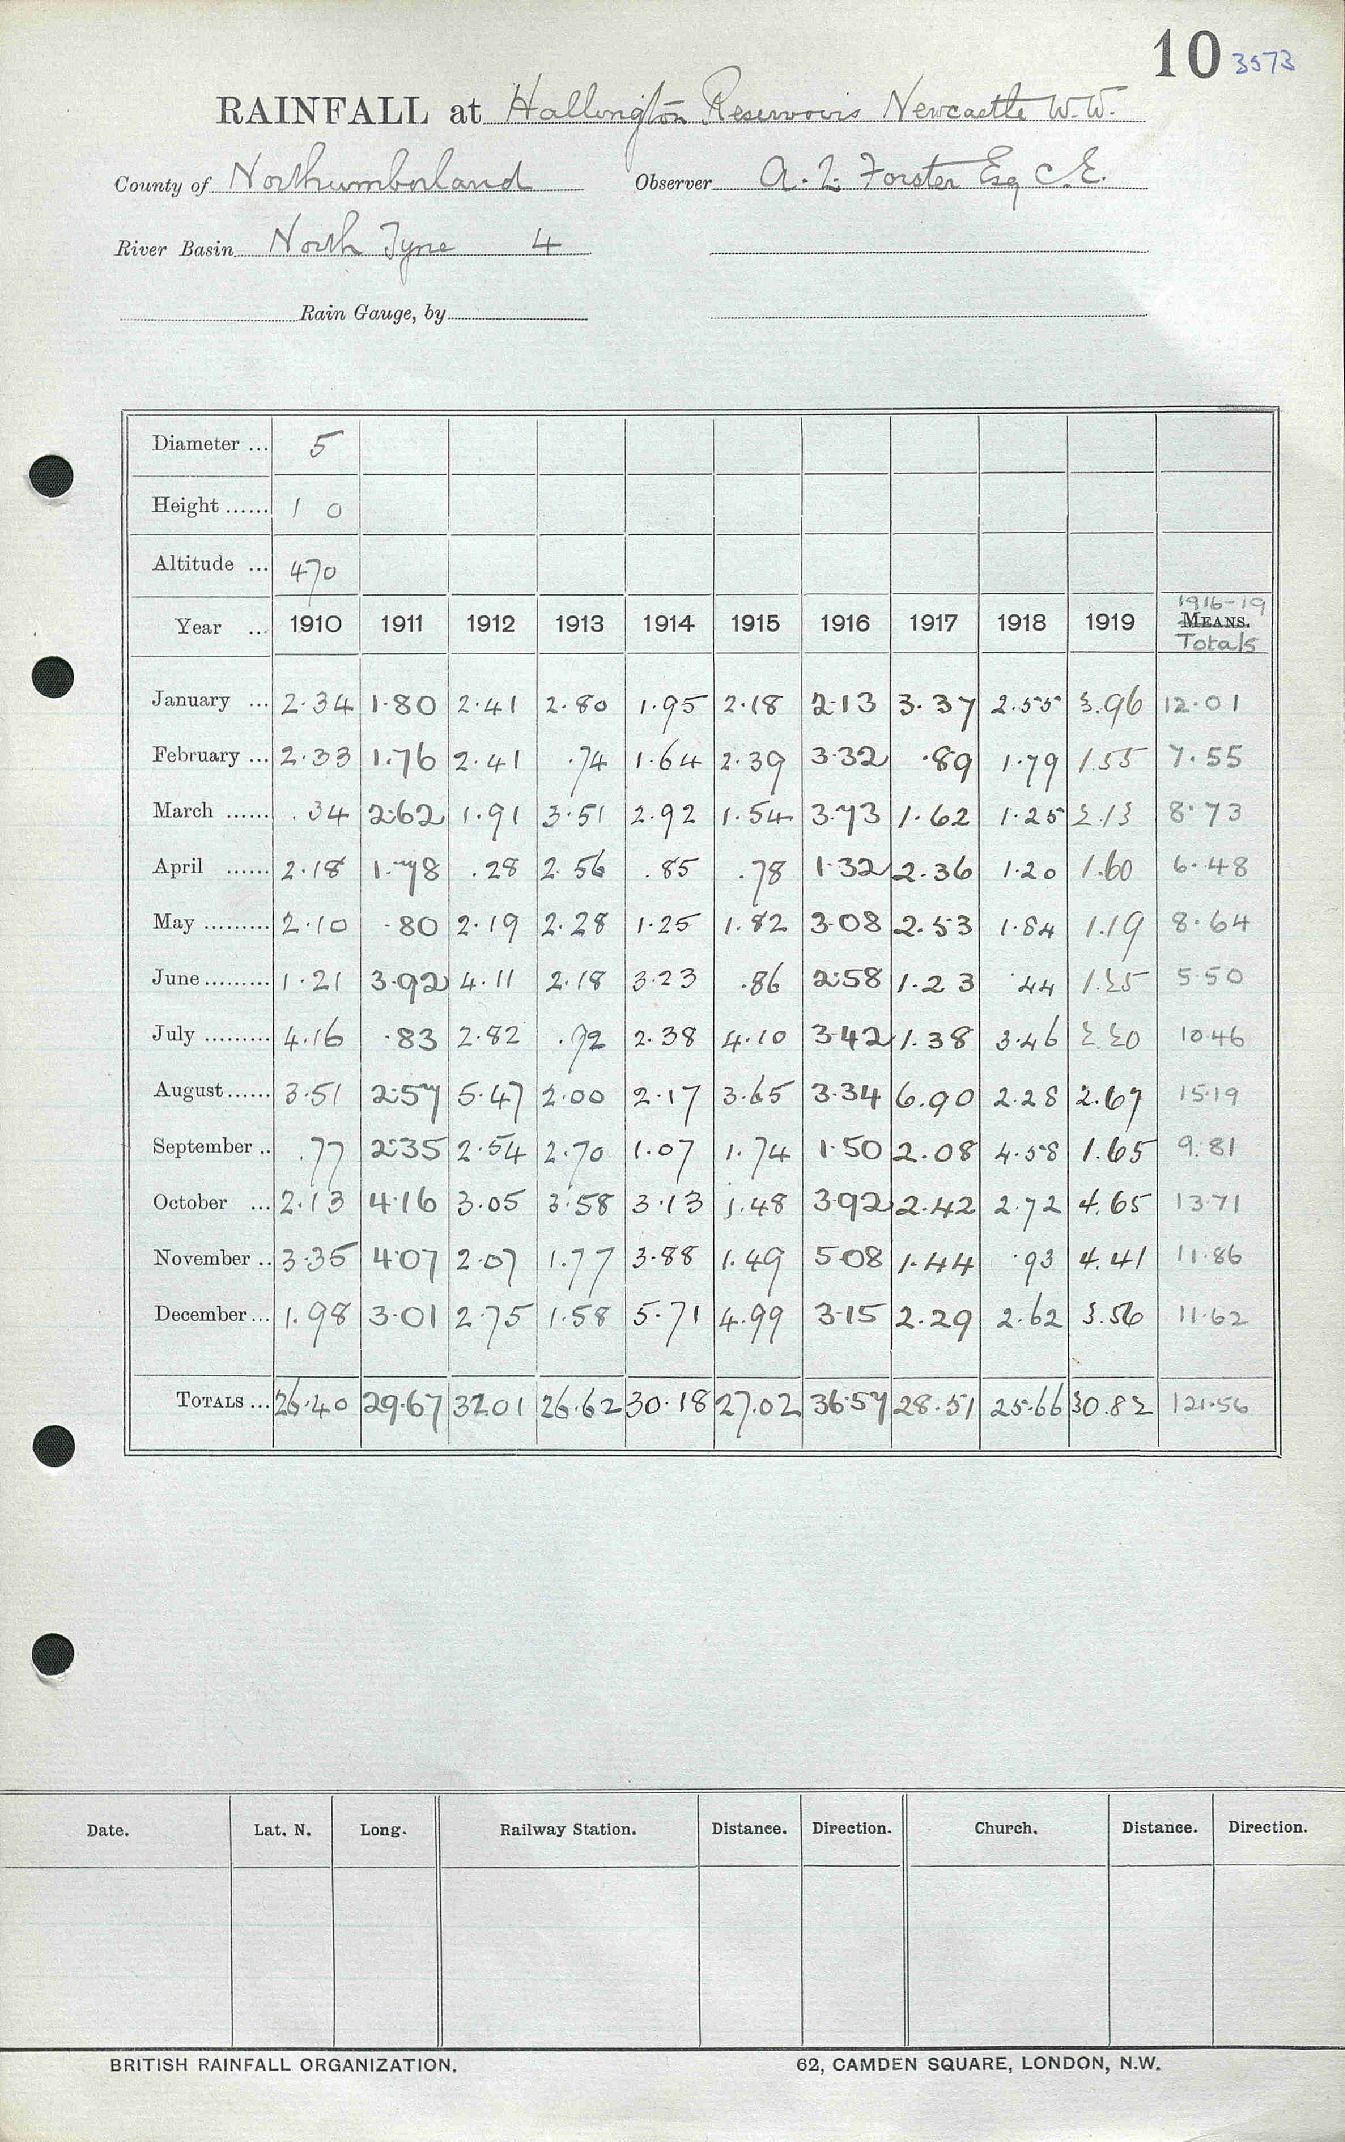 10 3573
RAINFALL at Hallington Reservoirs Newcastle W.W.
County of Northumberland Observer A. L. Forster Esq C.E.
River Basin North Tyne 4
Rain Gauge, by
Diameter ... 5
Height ...... 1 0
Altitude ... 470
1916-19
Year ... 1910 1911 1912 1913 1914 1915 1916 1917 1918 1919 MEANS.
Totals
January ... 2.34 1.80 2.41 2.80 1.95 2.18 2.13 3.37 2.55 3.96 12.01
February ... 2.33 1.76 2.41 .74 1.64 2.39 3.32 .89 1.79 1.55 7.55
March ...... .34 2.62 1.91 3.51 2.92 1.54 3.73 1.62 1.25 2.13 8.73
April ...... 2.18 1.78 .28 2.56 .85 .78 1.32 2.36 1.20 1.60 6.48
May ......... 2.10 .80 2.19 2.28 1.25 1.82 3.08 2.53 1.84 1.19 8.64
June ......... 1.21 3.92 4.11 2.18 3.23 .86 2.58 1.23 .44 1.25 5.50
July ......... 4.16 .83 2.82 .72 2.38 4.10 3.42 1.38 3.46 2.20 10.46
August ...... 3.51 2.57 5.47 2.00 2.17 3.65 3.34 6.90 2.28 2.67 15.19
September .. .77 2.35 2.54 2.70 1.07 1.74 1.50 2.08 4.58 1.65 9.81
October ... 2.13 4.16 3.05 3.58 3.13 1.48 3.92 2.42 2.72 4.65 13.71
November .. 3.35 4.07 2.07 1.77 3.88 1.49 5.08 1.44 .93 4.41 11.86
December ... 1.98 3.01 2.75 1.58 5.71 4.99 3.15 2.29 2.62 3.56 11.62
TOTALS ... 26.40 29.67 32.01 26.62 30.18 27.02 36.57 28.51 25.66 30.82 121.56
Date. Lat. N. Long. Railway Station. Distance. Direction. Church. Distance. Direction.
BRITISH RAINFALL ORGANIZATION. 62, CAMDEN SQUARE, LONDON, N.W.